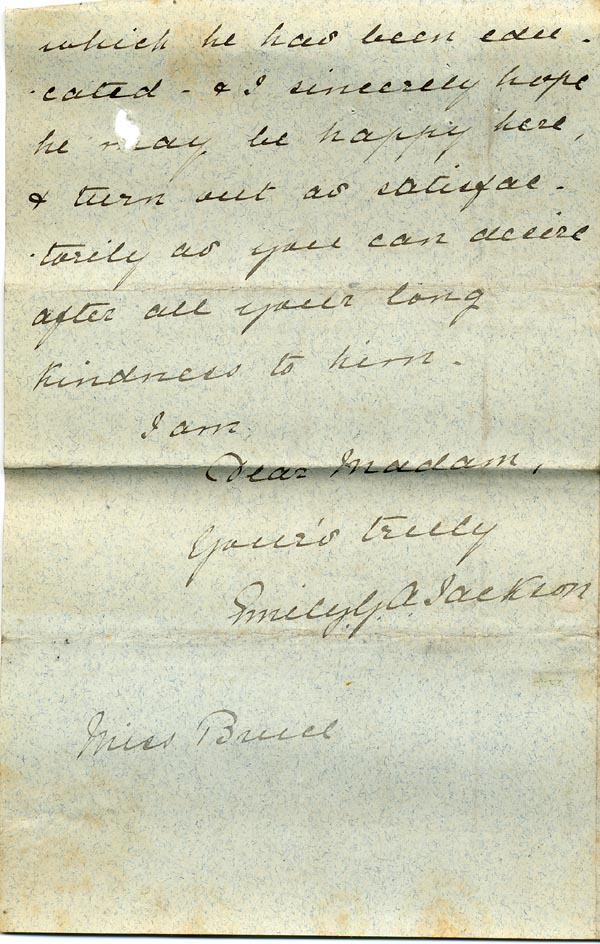 which he has been edu -
- cated - & I sincerely hope
he may be happy here,
& turn out as satisfac -
- torily as you can desire
after all your long
kindness to him -
I am,
Dear Madam,
Your's truly
Emily G A Jackson
Miss Bruce